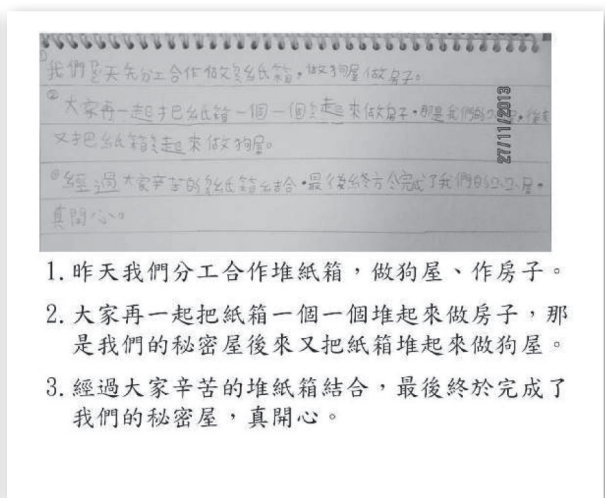 我們昨天先分工合作做ㄉㄨㄟ紙箱,做狗屋做房子。
大家再一起把紙箱一個一個ㄉㄨㄟ起來做房子,那是我們的ㄇㄧˋㄇㄧˋ屋,後來
又把紙箱ㄉㄨㄟ起來做狗屋。
經過大家辛苦的ㄉㄨㄟ紙箱結合,最後終於完成了我們的ㄇㄧˋㄇㄧˋ屋,
真開心。
27/11/2013
1. 昨天我們分工合作堆紙箱,做狗屋、作房子。
2. 大家再一起把紙箱一個一個堆起來做房子,那
是我們的秘密屋後來又把紙箱堆起來做狗屋。
3. 經過大家辛苦的堆紙箱結合,最後終於完成了
我們的秘密屋,真開心。